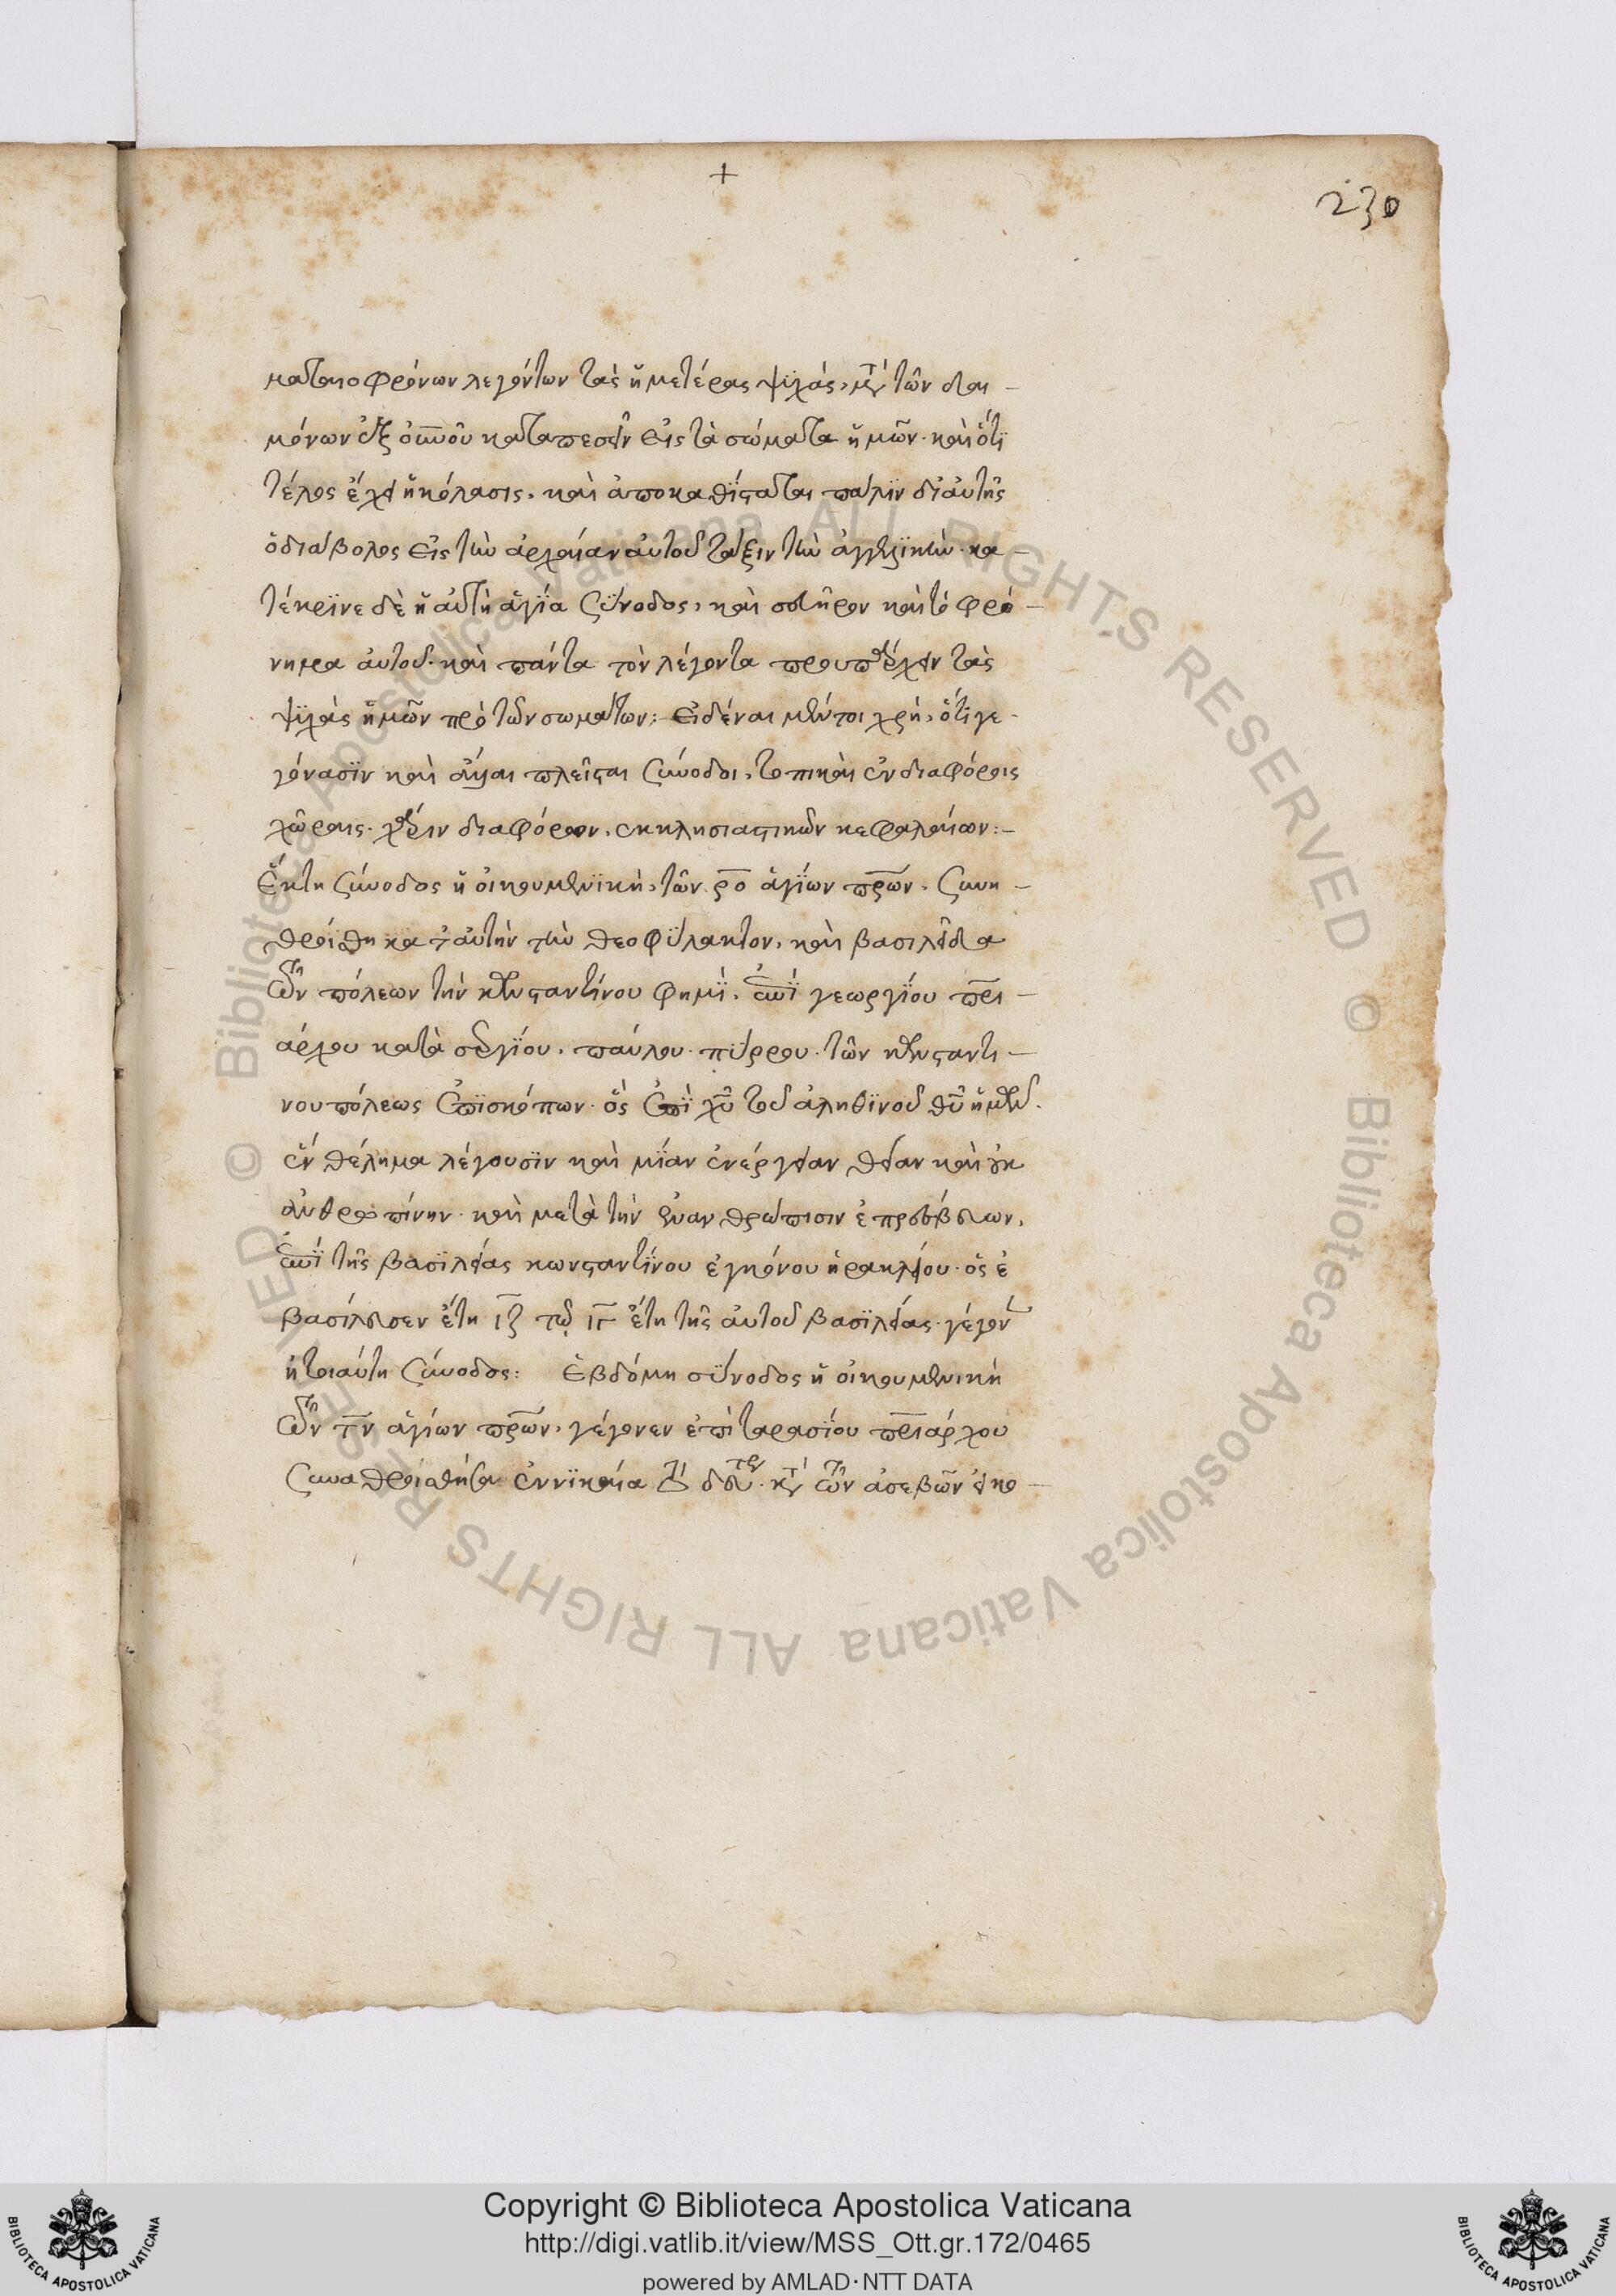 +
230
ματαιοφρόνων λεγόντων τὰς ἡμετέρας ψϊχάς, μετὰ τῶν δαι–
μόνων ἐξ οὐνοῦ καταπεσεῖν εἰς τὰ σώματα ἡμῶν· καὶ ὅτϊ
τέλος ἔχει ἡ κόλασις, καὶ ἀποκαθίσταται πάλϊν δι᾽ αὐτῆς
ὁ διάβολος εἰς τὴν ἀρχαίαν αὐτοῦ τάξιν τὴν ἀγγελϊκὴν· κα–
τέκρϊνε δὲ ἡ αὐτὴ ἁγΐα σΰνοδος, καὶ σευῆρον καὶ τὸ φρό–
νημα αὐτοῦ· καὶ πάντα τὸν λέγοντα προυπάρχειν τὰς
ψϊχὰς ἡμῶν πρὸ τῶν σωμάτων:– εἰδέναι μέντοι χρὴ, ὅτι γε–
γόνασϊν καὶ ἄλλαι πλεῖσται σύνοδοι, τοπικαὶ ἐν διαφόροις
χῶραις· χάριν διαφόρων, ἐκκλησιαστικῶν κεφαλαίων:–
Ἕκτη σύνοδος ἡ οἰκουμενϊκὴ, τῶν ρο ἁγΐων πρων, συνη–
θροίσθη κατ᾽ αὐτὴν τὴν θεοφΰλακτον, καὶ βασιλεΐδα
τῶν πόλεων τὴν κωνσταντίνου φημΐ, ἐπΐ γεωργΐου πρι–
άρχου κατὰ σεργΐου, παύλου· πΰρρου· τῶν κωνσταντι–
νουπόλεως ἐπϊσκόπων· ὃς ἐπῒ χυ τοῦ ἀληθϊνοῦ θυ ἡμῶν·
ἓν θέλημα λέγουσϊν καὶ μΐαν ἐνέργειαν θείαν καὶ οὐκ
ἀνθρωπίνην· καὶ μετὰ τὴν ἐνανθρώπισιν ἐπρέσβευον,
ἐπΐ τῆς βασϊλείας κωνσταντΐνου ἐγγόνου ἡρακλείου· ὃς ἐ
βασίλευσεν ἔτη ιζ τῷ ιγ ἔτη τῆς αὐτοῦ βασϊλείας· γέγονε
ἡ τοιαύτη σύνοδος: Ἑβδόμη σΰνοδος ἡ οἰκουμενικὴ
τῶν τν ἁγίων πρων, γέγονεν ἐπὶ ταρασΐου πριάρχου
συναθροισθήσα ἐν νϊκαία τὸ δεύτερον· κατὰ τῶν ἀσεβῶν εἰκο–
Copyright © Biblioteca Apostolica Vaticana
http://digi.vatlib.it/view/MSS_Ott.gr.172/0465
powered by AMLAD·NTT DATA